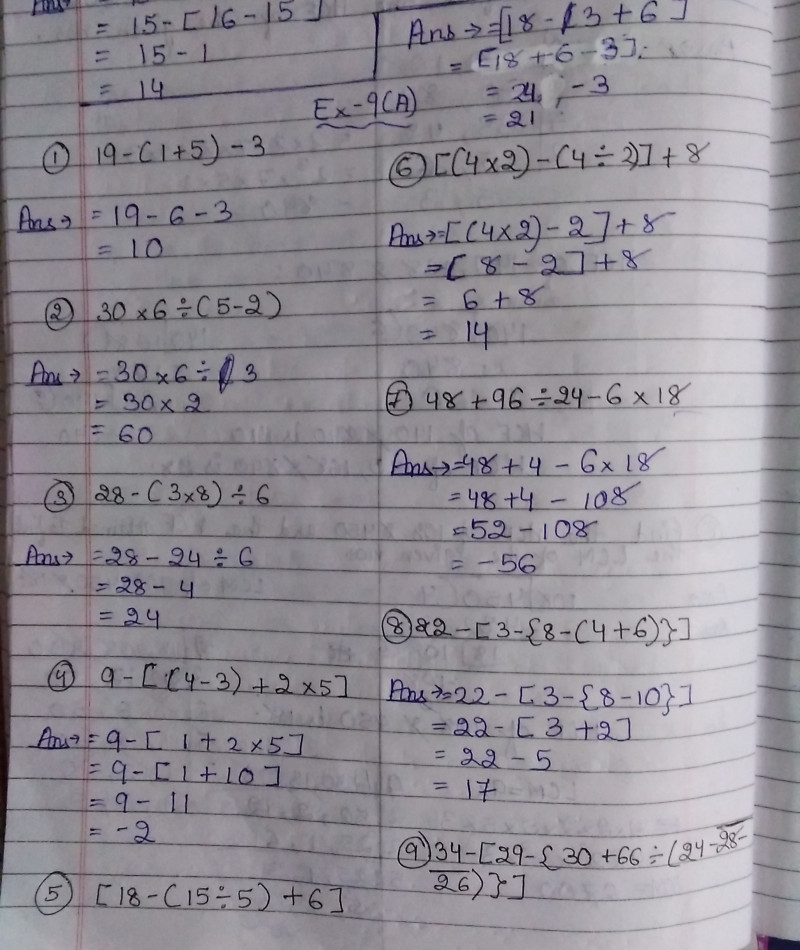 Ans→
= 15-[16-15]
= 15-1
= 14
Ex-9(A)
① 19-(1+5)-3
Ans→ = 19-6-3
= 10
② 30×6÷(5-2)
Ans→ = 30×6÷3
= 30×2
= 60
③ 28-(3×8)÷6
Ans→ = 28-24÷6
= 28-4
= 24
④ 9-[(4-3)+2×5]
Ans→ = 9-[1+2×5]
= 9-[1+10]
= 9-11
= -2
⑤ [18-(15÷5)+6]
Ans→ = [18-3+6]
= [18+6-3]
= 24-3
= 21
⑥ [(4×2)-(4÷2)]+8
Ans→ = [(4×2)-2]+8
= [8-2]+8
= 6+8
= 14
⑦ 48+96÷24-6×18
Ans→ = 48+4-6×18
= 48+4-108
= 52-108
= -56
⑧ 22-[3-{8-(4+6)}]
Ans→ = 22-[3-{8-10}]
= 22-[3+2]
= 22-5
= 17
⑨ 34-[29-{30+66÷(24-28-
26)}]